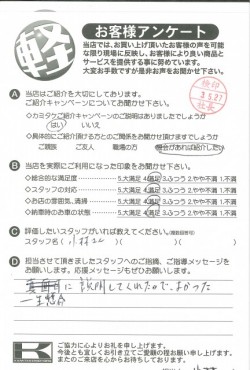 軽
お客様アンケート
当店では、お買い上げ頂いたお客様の声を可能
な限り現場に反映し、お客様により良い商品と
サービスを提供する事に努めています。
大変お手数ですが是非お声をお聞かせ下さい。
A 当店はご紹介を大切にしております。
ご紹介キャンペーンについてお聞かせ下さい。
◇カミタケご紹介キャンペーンのご説明はありましたでしょうか
はい いいえ
◇具体的にご紹介頂ける方とのご関係をお聞かせ頂けますでしょうか
ご親族 ご友人 職場の方 機会があれば紹介したい
検印
3.5.27
社長
B 当店を実際にご利用になった印象をお聞かせ下さい。
◇総合的な満足度 5.大満足 4.満足 3.ふつう 2.やや不満 1.不満
◇スタッフの対応 5.大満足 4.満足 3.ふつう 2.やや不満 1.不満
◇お店の雰囲気、清掃 5.大満足 4.満足 3.ふつう 2.やや不満 1.不満
◇納車時のお車の状態 5.大満足 4.満足 3.ふつう 2.やや不満 1.不満
C 評価したいスタッフがいれば教えてください。(複数回答可)
スタッフ名( 小林
D 担当させて頂きましたスタッフへのご指摘、ご指導メッセージを
お願いします。応援メッセージもぜひお願いします。
真面目に説明してくれたので、よかった
K
ご協力に心よりお礼を申し上げます。
今後とも宜しくお引き立てご愛顧の程お願い申し上げます。
またのご来店を心からお待ちしております。